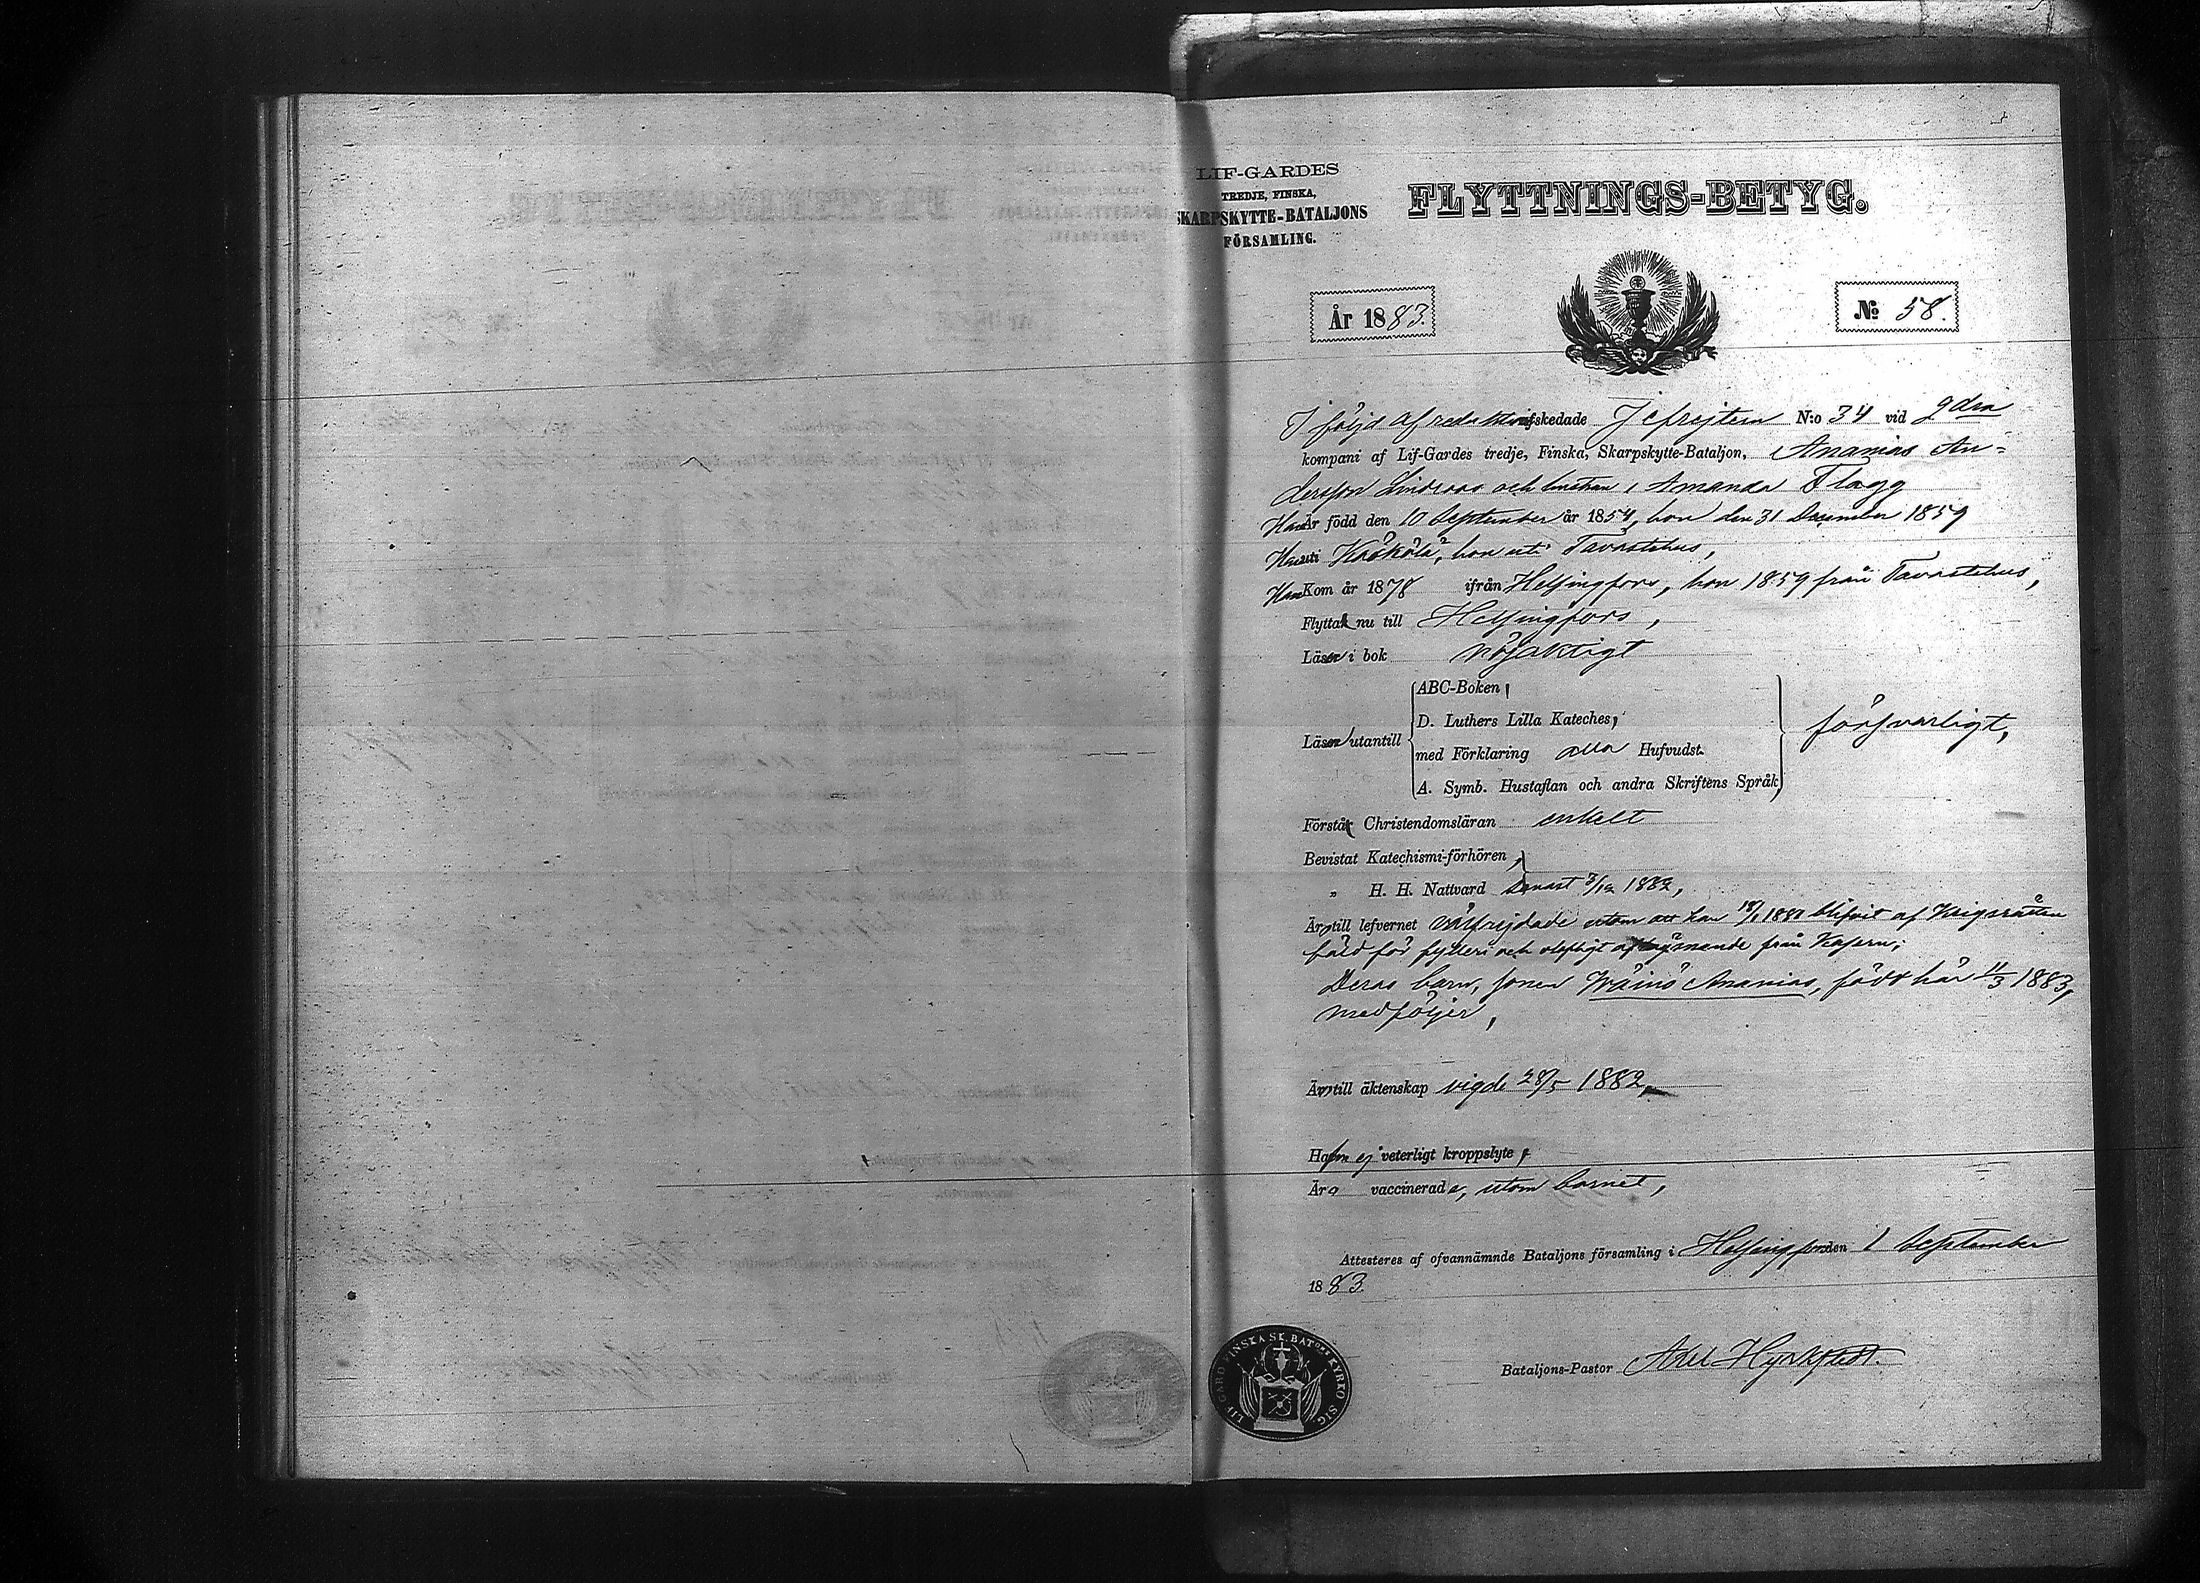 LIF-GARDES
TREDJE, FINSKA,
SKARPSKYTTE-BATALJONS
FÖRSAMLING.
FLYTTNINGS-BETYG.
År 1883.
№ 58.
I följd af afskedade Jefrejtern N:o 34 vid 2dra
kompani af Lif-Gardes tredje, Finska, Skarpskytte-Bataljon, Ananias An=
dersson Lindroos och hustrun Amanda Flagg
Han Är född den 10 September år 1854, hon den 31 December 1859
Han uti Koskola, hon uti Tavastehus,
Han Kom år 1878 ifrån Helsingfors, hon 1859 från Tavastehus,
Flytta nu till Helsingfors,
Läser i bok nöjaktigt
Läser utantill
ABC-Boken,
D. Luthers Lilla Kateches,
med Förklaring alla Hufvudst.
A. Symb. Hustaflan och andra Skriftens Språk
försvarligt,
Förstår Christendomsläran enkelt
Bevistat Katechismi-förhören,
„ H. H. Nattvard senast 3/12 1882,
Äro till lefvernet välfrejdade utom att han blifvit af Krigsrätten
fäld för fylleri och olofligt från Kasern;
Deras barn, sonen Wäinö Ananias, född här 11/3 1883,
medföljer,
Äro till äktenskap vigde 28/5 1882,
Hafva ej veterligt kroppslyte,
Äro vaccinerade, utom barnet,
Attesteres af ofvannämnde Bataljons församling i Helsingfors den 1 September
1883.
Bataljons-Pastor Axel Hyrkstedt.
LIF GARD. FINSKA SK. BATONS KYRKO SIG.